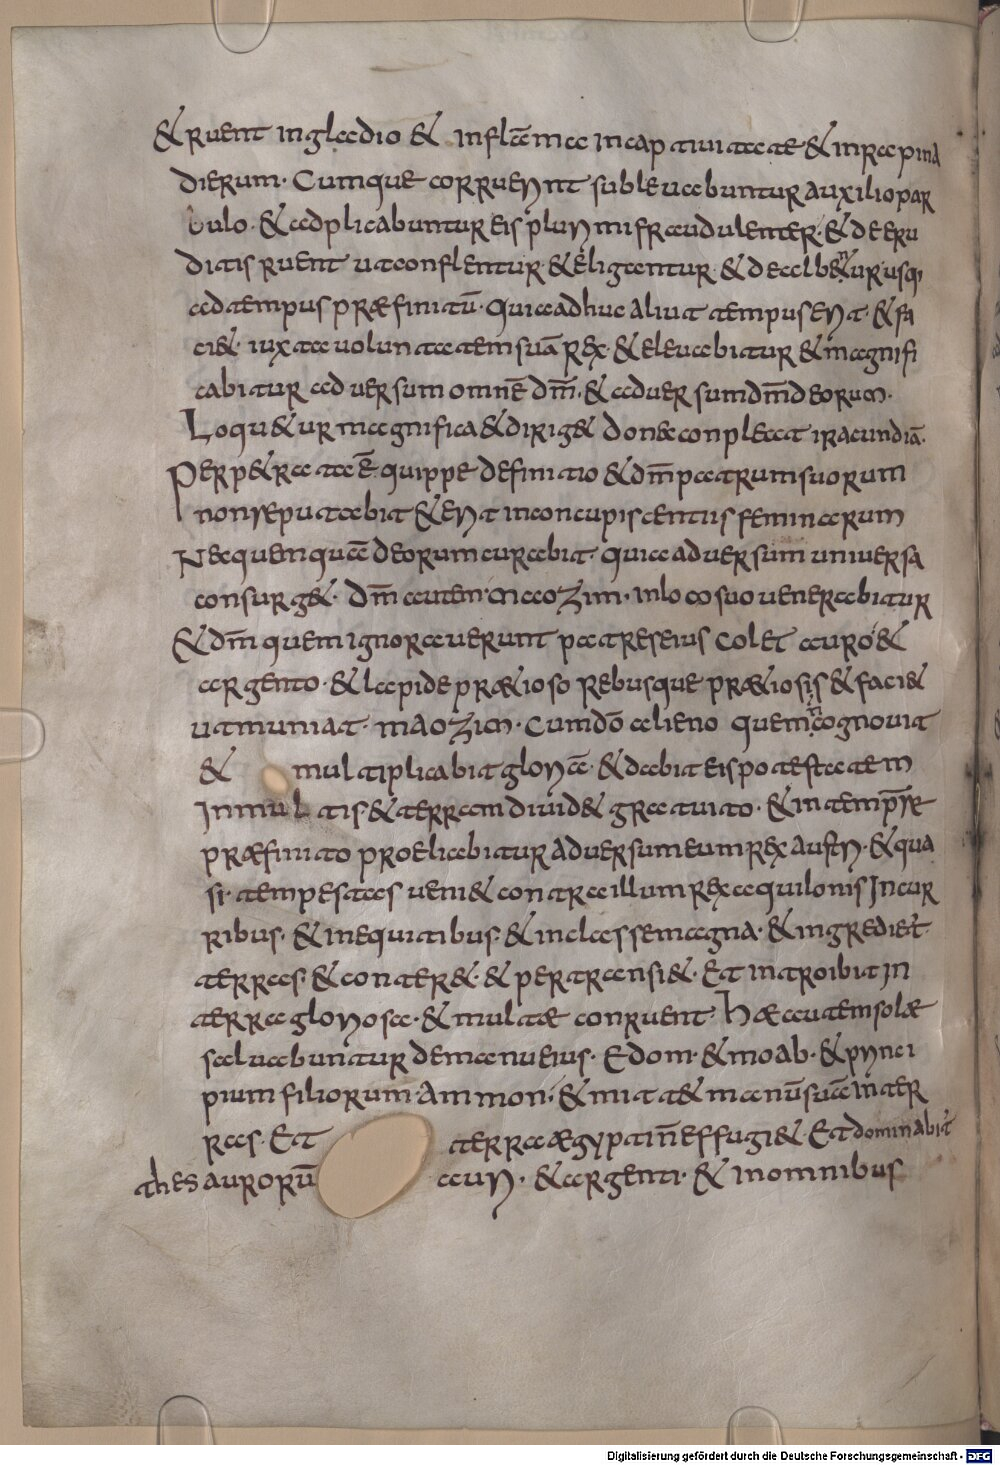 & ruent in gladio & inflāma in captiuitate & in rapina
dierum. Cumque corruerint subleuabuntur auxilio par
uulo. & adplicabuntur eis plurimi fraudulenter. & de eru
ditis ruent ut conflentur & eligantur & dealbentur usq;
ad tempus præfinitū. quia adhuc aliut tempus erit. & fa
ci& iuxta uoluntatem suā rex. & eleuabitur & magnifi
cabitur aduersum omnē dm̄. & aduersum dm̄ deorum.
Loqu&ur magnifica & dirig& donec conpleat iracundiā.
Perp&rata ē quippe definitio & dm̄ patrum suorum
non reputabit & erit in concupiscentiis feminarum
Nec quemquā deorum curabit. quia aduersum uniuersa
consurg&. dm̄ autem maozim. in loco suo uenerabitur
& dm̄ quem ignorauerunt patres eius col& auro &
argento. & lapide præ&ioso rebusque præ&iosis & faci&
ut muniat. maozim. Cum dō alieno quem cognouit
& multiplicabit gloriā. & dabit eis potestatem
In multis & terram diuid& gratuito. & in tempr̄e
præfinito proeliabitur aduersum eum rex austri. & qua
si. tempestas ueni& contra illum rex aquilonis In cur
ribus. & in equitibus. & in classe magna. & ingrediet̄
terras. & conter& & pertransi&. Et introibit In
terra gloriosa. & multae conruent. Hae autem solae
saluabuntur de manu eius. Edom. & moab. & princi
pium filiorum Ammon. & mitt& manū suā in ter
ras. Et terra ægypti n̄ effugi& Et dominabit̄
thesaurorū auri. & argenti. & in omnibus
Digitalisierung gefördert durch die Deutsche Forschungsgemeinschaft - DFG